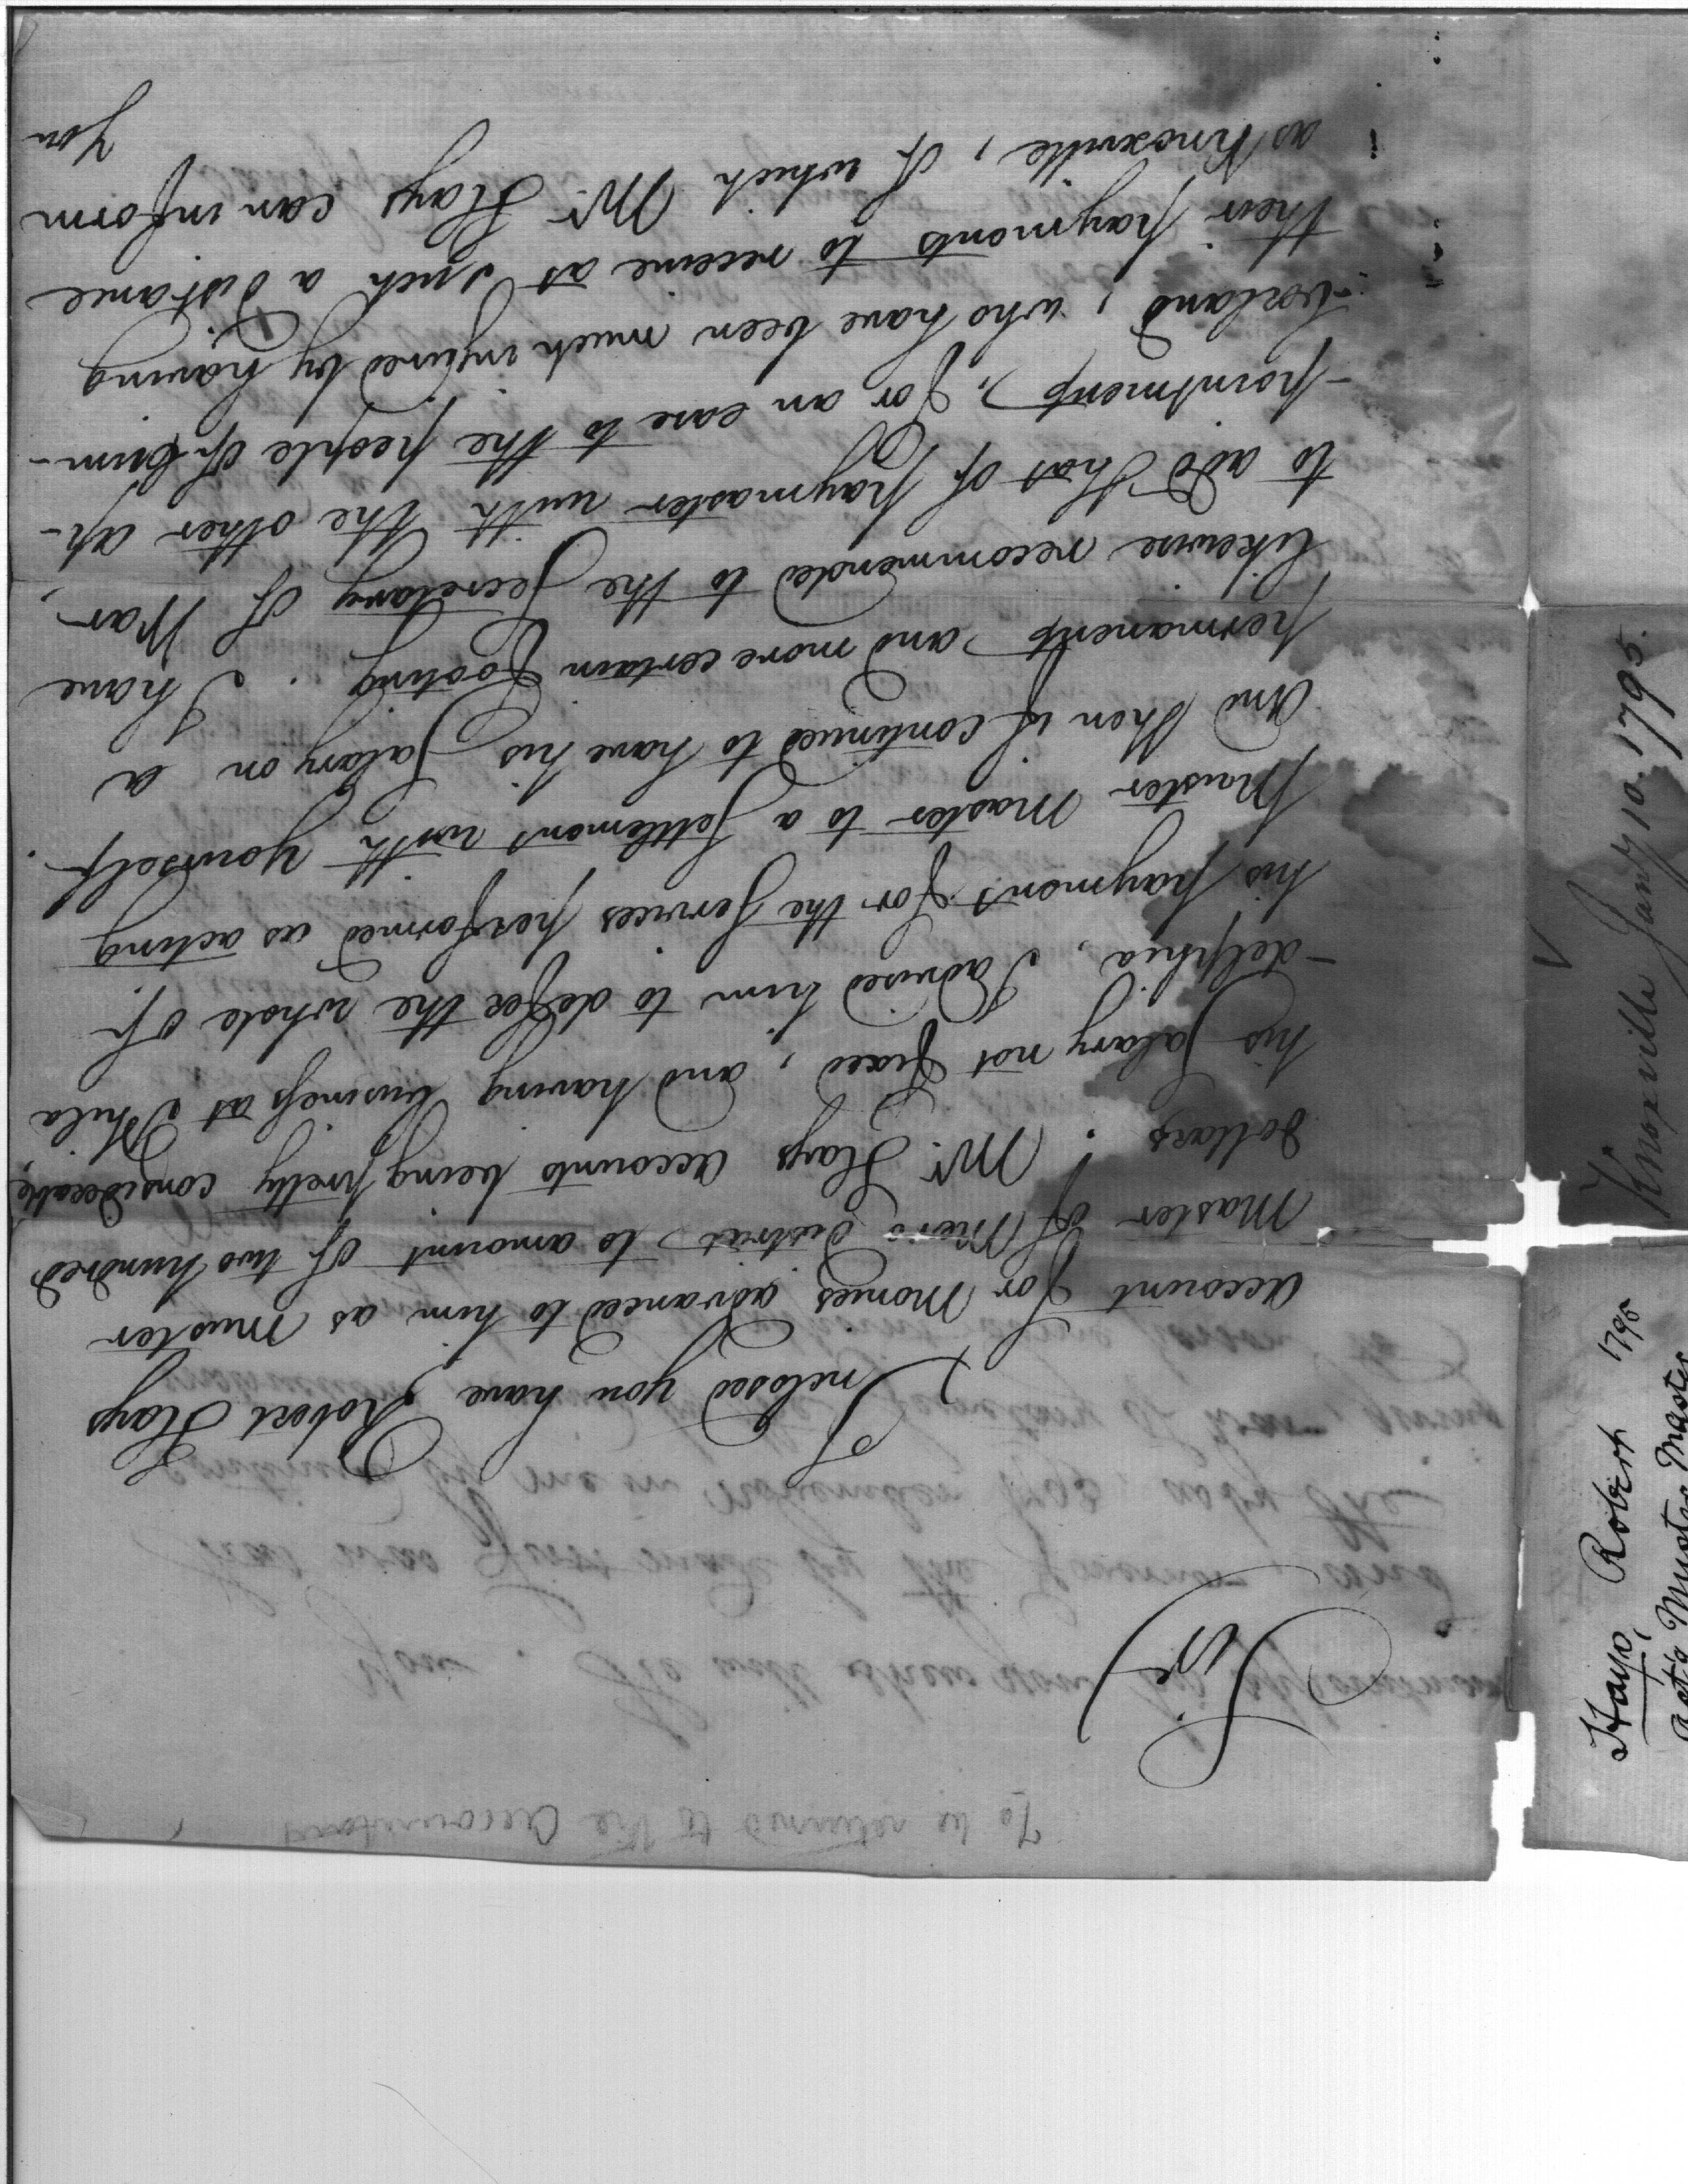 To be returned to the Accountant
Sir
Inclosed you have Robert Hays
account for Monies advanced to him as Muster
Master of Mero District, to amount of two hundred
Dollars. Mr. Hays accounts being pretty considerable,
his Salary not fixed, and having business at Phila
-delphia, I advised him to deffer the whole of
his payment for the Services performed as acting
Muster Master to a Settlement with yourself.
And then if continued to have his Salary on a
permanent and more certain footing. I have
likewise recommended to the Secretary of War,
to add that of paymaster with the other ap-
-pointment, for an ease to the people of Cum-
-berland, who have been much injured by having
their payments to receive at Such a distance
as Knoxville, of which Mr. Hays can inform
You
Knoxville Jany 10. 1795.
Hays, Robert 1795
Act'g Muster Master